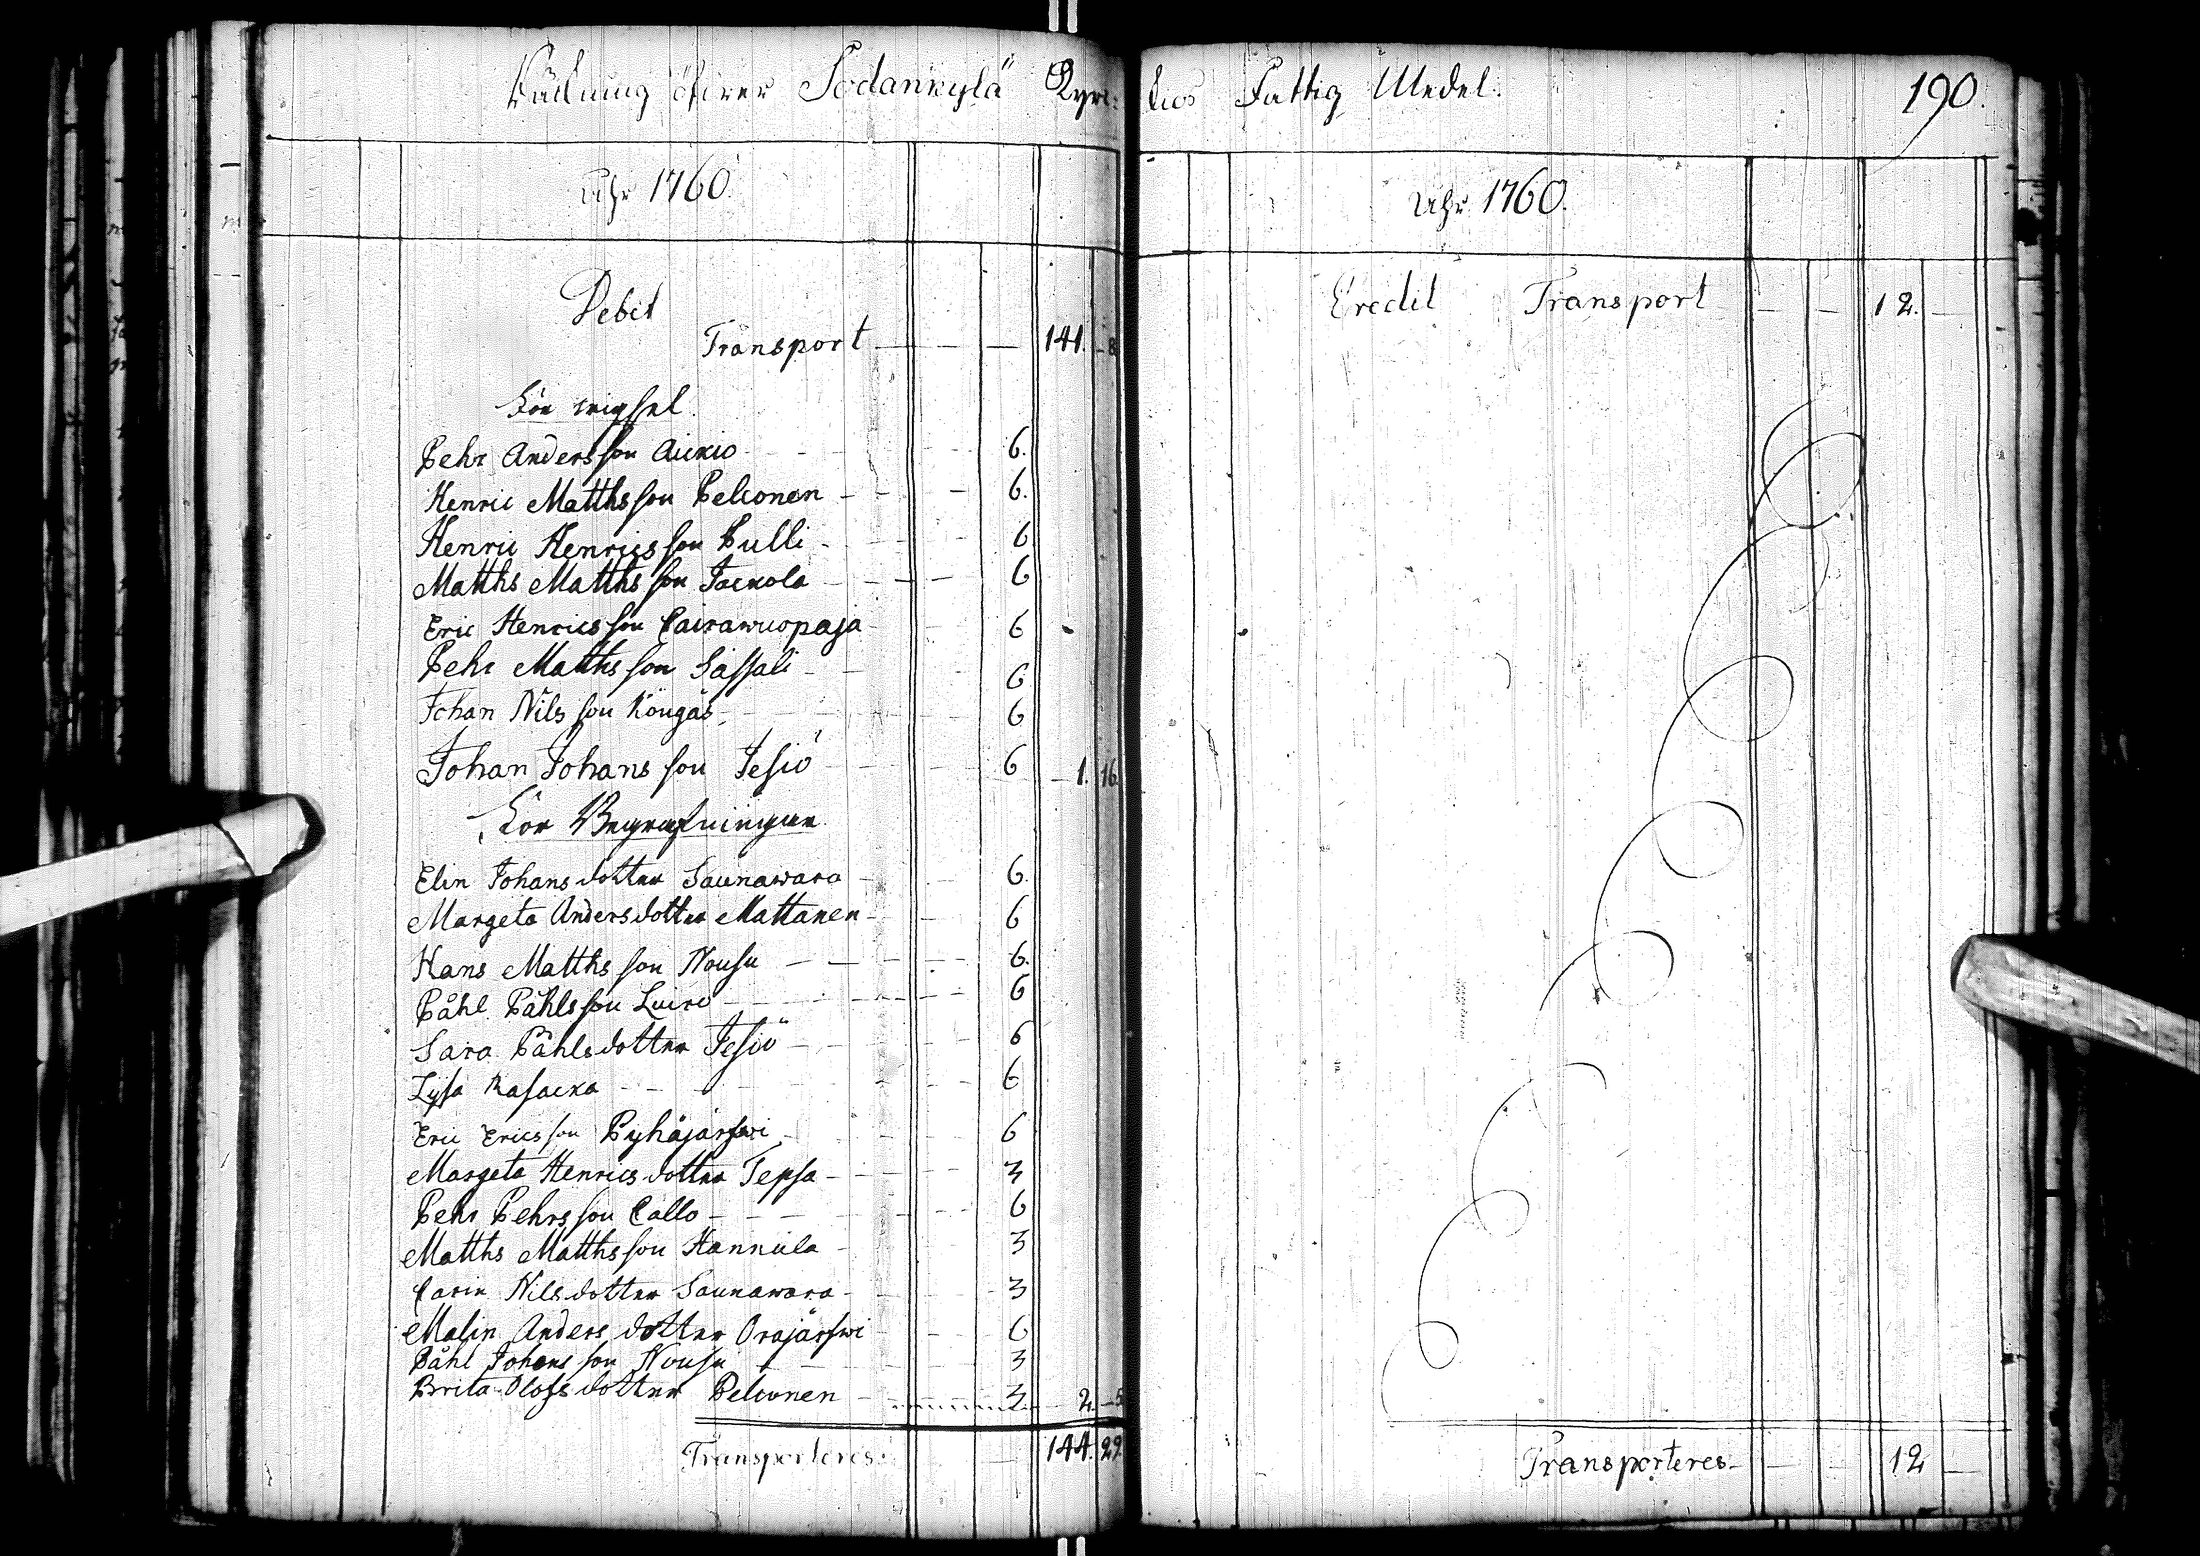 Räkning öfwer Sodankylä Kyrc:
Åhr 1760.
Debet
Transport — — — 141. — 8
För wigsel.
Pehr Andersson Aickio 6.
Henric Matthsson Pelconen — 6.
Henric Henricsson Pulli 6
Matths Matthsson Jackola 6
Eric Henricsson Cairawuopaja 6
Pehr Matthsson Sassali 6
Johan Nilsson Köngäs 6
Johan Johansson Jesiö 6 — 1. 16
För Begrafningar
Elin Johansdotter Saunawara 6.
Margeta Andersdotter Mattanen 6
Hans Matthsson Nousu 6.
Påhl Påhlsson Luiro 6
Sara Påhlsdotter Jesiö 6
Lysa Rasacka 6
Eric Ericsson Pyhäjärfwi 6
Margeta Henricsdotter Tepsa 3
Pehr Pehrsson Callo 6
Matths Matthsson Hannula 3
Carin Nilsdotter Saunawara 3
Malin Andersdotter Orajärfwi 6
Påhl Johansson Nousu 3
Brita Olofsdotter Pelconen 3 2. — 5
Transporteres. 144. 29.
kios Fattig Medel. 190.
Åhr 1760.
Credit Transport — — 12. —
Transporteres — — 12 —